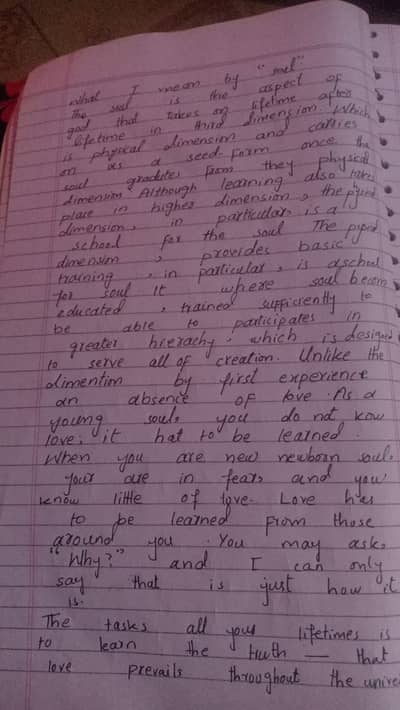 What I mean by "soul".
The soul is the aspect of
god that takes on lifetime after
lifetime in third dimension. Which
is physical dimension and carries
on as a seed form once the
soul gradutes from they physical
dimension. Although learning also takes
place in higher dimension, the
dimension, in particular, is a
school for the soul The
dimension, provides basic
training, in particular, is a school
for soul It where soul become
educated, trained sufficiently to
be able to participates in
greater hierachy, which is designed
to serve all of creation. Unlike the
dimention by first experience
an absence of love. As a
young soul, you do not know
love; it hat to be learned.
When you are new newborn soul,
your are in fear, and you
know little of love. Love has
to be learned from those
around you. You may ask,
"Why?" and I can only
say that is just how it
is.
The tasks all your lifetimes is
to learn the truth — that
love prevails throughout the unive